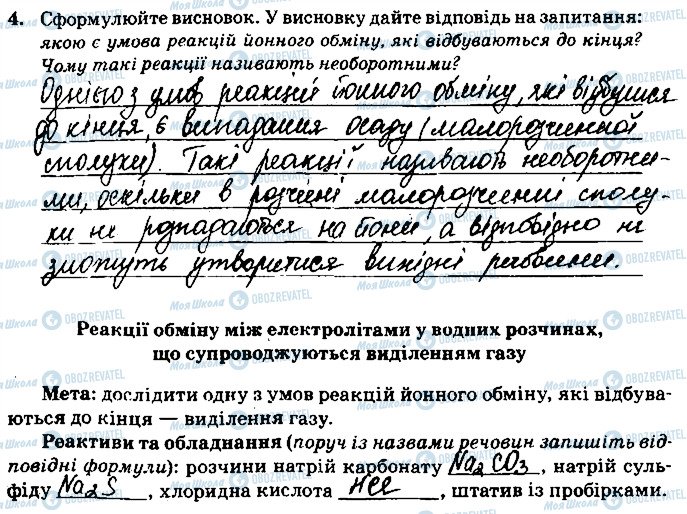 4. Сформулюйте висновок. У висновку дайте відповідь на запитання:
якою є умова реакцій йонного обміну, які відбуваються до кінця?
Чому такі реакції називають необоротними?
Однією з умов реакцій йонного обміну, які відбулися
до кінця, є випадання осаду (малорозчинної
сполуки). Такі реакції називають необоротни-
ми, оскільки в розчині малорозчинні сполу-
ки не розпадаються на йони, а відповідно не
зможуть утворитися вихідні речовини.
Реакції обміну між електролітами у водних розчинах,
що супроводжуються виділенням газу
Мета: дослідити одну з умов реакцій йонного обміну, які відбува-
ються до кінця — виділення газу.
Реактиви та обладнання (поруч із назвами речовин запишіть від-
повідні формули): розчини натрій карбонату Na2CO3, натрій суль-
фіду Na2S, хлоридна кислота HCl, штатив із пробірками.